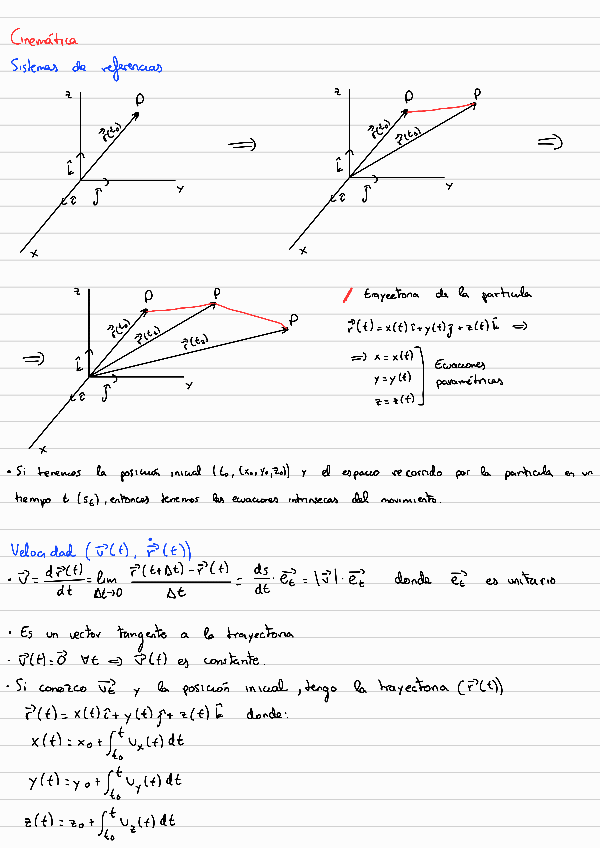 Cinemática
Sistemas de referencias
z P r⃗(t₀) k̂ ĵ î y x ⇒
z P P r⃗(t₀) r⃗(t₀) k̂ ĵ î y x ⇒
⇒ z P P P r⃗(t₀) r⃗(t₀) r⃗(t₀) k̂ ĵ î y x
/ trayectoria de la partícula
r⃗(t) = x(t) î + y(t) ĵ + z(t) k̂ ⇒
⇒ x = x(t)
y = y(t)
z = z(t)
Ecuaciones
paramétricas
• Si tenemos la posición inicial (t₀, (x₀, y₀, z₀)) y el espacio recorrido por la partícula en un
tiempo t (Sₜ), entonces tenemos las ecuaciones intrínsecas del movimiento.
Velocidad (v⃗(t), ṙ⃗(t))
• v⃗ = dr⃗(t)/dt = lim Δt→0 (r⃗(t+Δt) - r⃗(t))/Δt = ds/dt · e⃗ₜ = |v⃗| · e⃗ₜ donde e⃗ₜ es unitario
• Es un vector tangente a la trayectoria
• v⃗(t) = 0⃗ ∀t ⇒ r⃗(t) es constante.
• Si conozco v⃗ₜ y la posición inicial, tengo la trayectoria (r⃗(t))
r⃗(t) = x(t) î + y(t) ĵ + z(t) k̂ donde:
x(t) = x₀ + ∫ₜ₀ᵗ vₓ(t) dt
y(t) = y₀ + ∫ₜ₀ᵗ v_y(t) dt
z(t) = z₀ + ∫ₜ₀ᵗ v_z(t) dt